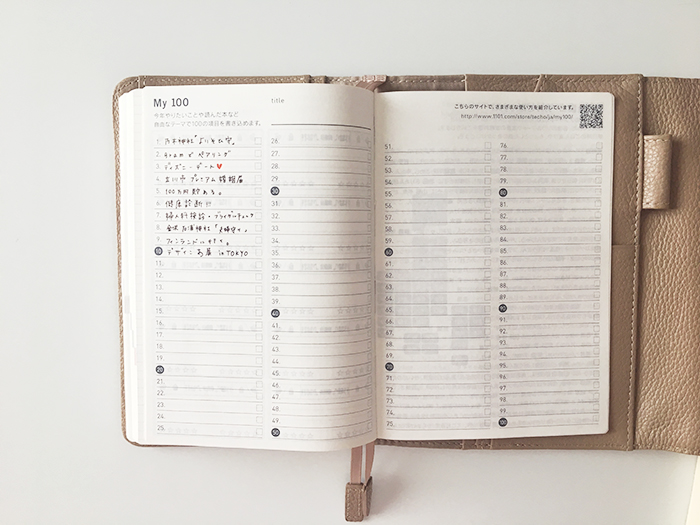 My 100
今年やりたいことや読んだ本など
自由なテーマで100の項目を書き込めます。
title
こちらのサイトで、さまざまな使い方を紹介しています。
http://www.1101.com/store/techo/ja/my100/
1. 乃木神社「よりそひ守」
2. で ペアリング
3. ディズニーデート♥
4. 立川 プレミアム 婚姻届
5. 100万円貯める。
6. 健康診断!!
7. 婦人科検診・ブライダルチェック
8. 神社「夫婦守り」
9.
10 デザインあ展 in TOKYO
11.
12.
13.
14.
15.
16.
17.
18.
19.
20
21.
22.
23.
24.
25.
26.
27.
28.
29.
30
31.
32.
33.
34.
35.
36.
37.
38.
39.
40
41.
42.
43.
44.
45.
46.
47.
48.
49.
50
51.
52.
53.
54.
55.
56.
57.
58.
59.
60
61.
62.
63.
64.
65.
66.
67.
68.
69.
70
71.
72.
73.
74.
75.
76.
77.
78.
79.
80
81.
82.
83.
84.
85.
86.
87.
88.
89.
90
91.
92.
93.
94.
95.
96.
97.
98.
99.
100